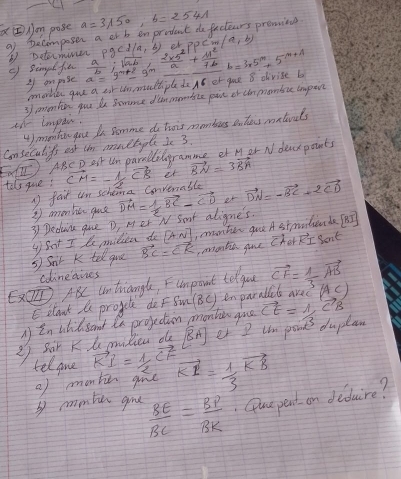 Ex I 1) on pose a = 3150, b = 2541
a) Decomposer a et b en produit de facteurs premiers
b) Determiner pgcd(a, b) et ppcm(a, b)
c) Simplifier a/b ; √ab
2) on pose a = b = 3x5^m + 5^m+1
montrer que a est un multiple de 16 et que 8 divise b
3) montrer que la somme d'un nombre pair et un nombre impair
est impair.
4) montrer que la somme de trois nombres entiers naturels
consecutifs est un multiple de 3.
Ex II ABCD est un parallélogramme et M et N deux points
tels que : CM = -1/2 CB et BN = 3BA
1) fait un schéma convenable
2) montrer que DM = 1/2 BC - CD et DN = -BC + 2CD
3) Deduire que D, M et N sont alignés.
4) Soit I le milieu de [AN], montrer que A est milieu de [BI]
5) Soit K tel que BC = CK, montrer que CA et KI sont
colineaires
Ex III ABC un triangle, F un point tel que CF = 1/3 AB
E étant le projeté de F sur (BC) en parallele avec (AC)
1) En utilisant la projection montrer que CE = 1/3 CB
2) Soit K le milieu de [BA] et I un point du plan
tel que KI = 1/2 CF
a) montrer que KI = 1/3 KB
b) montrer que
BE/BC = BI/BK . Que peut-on déduire ?